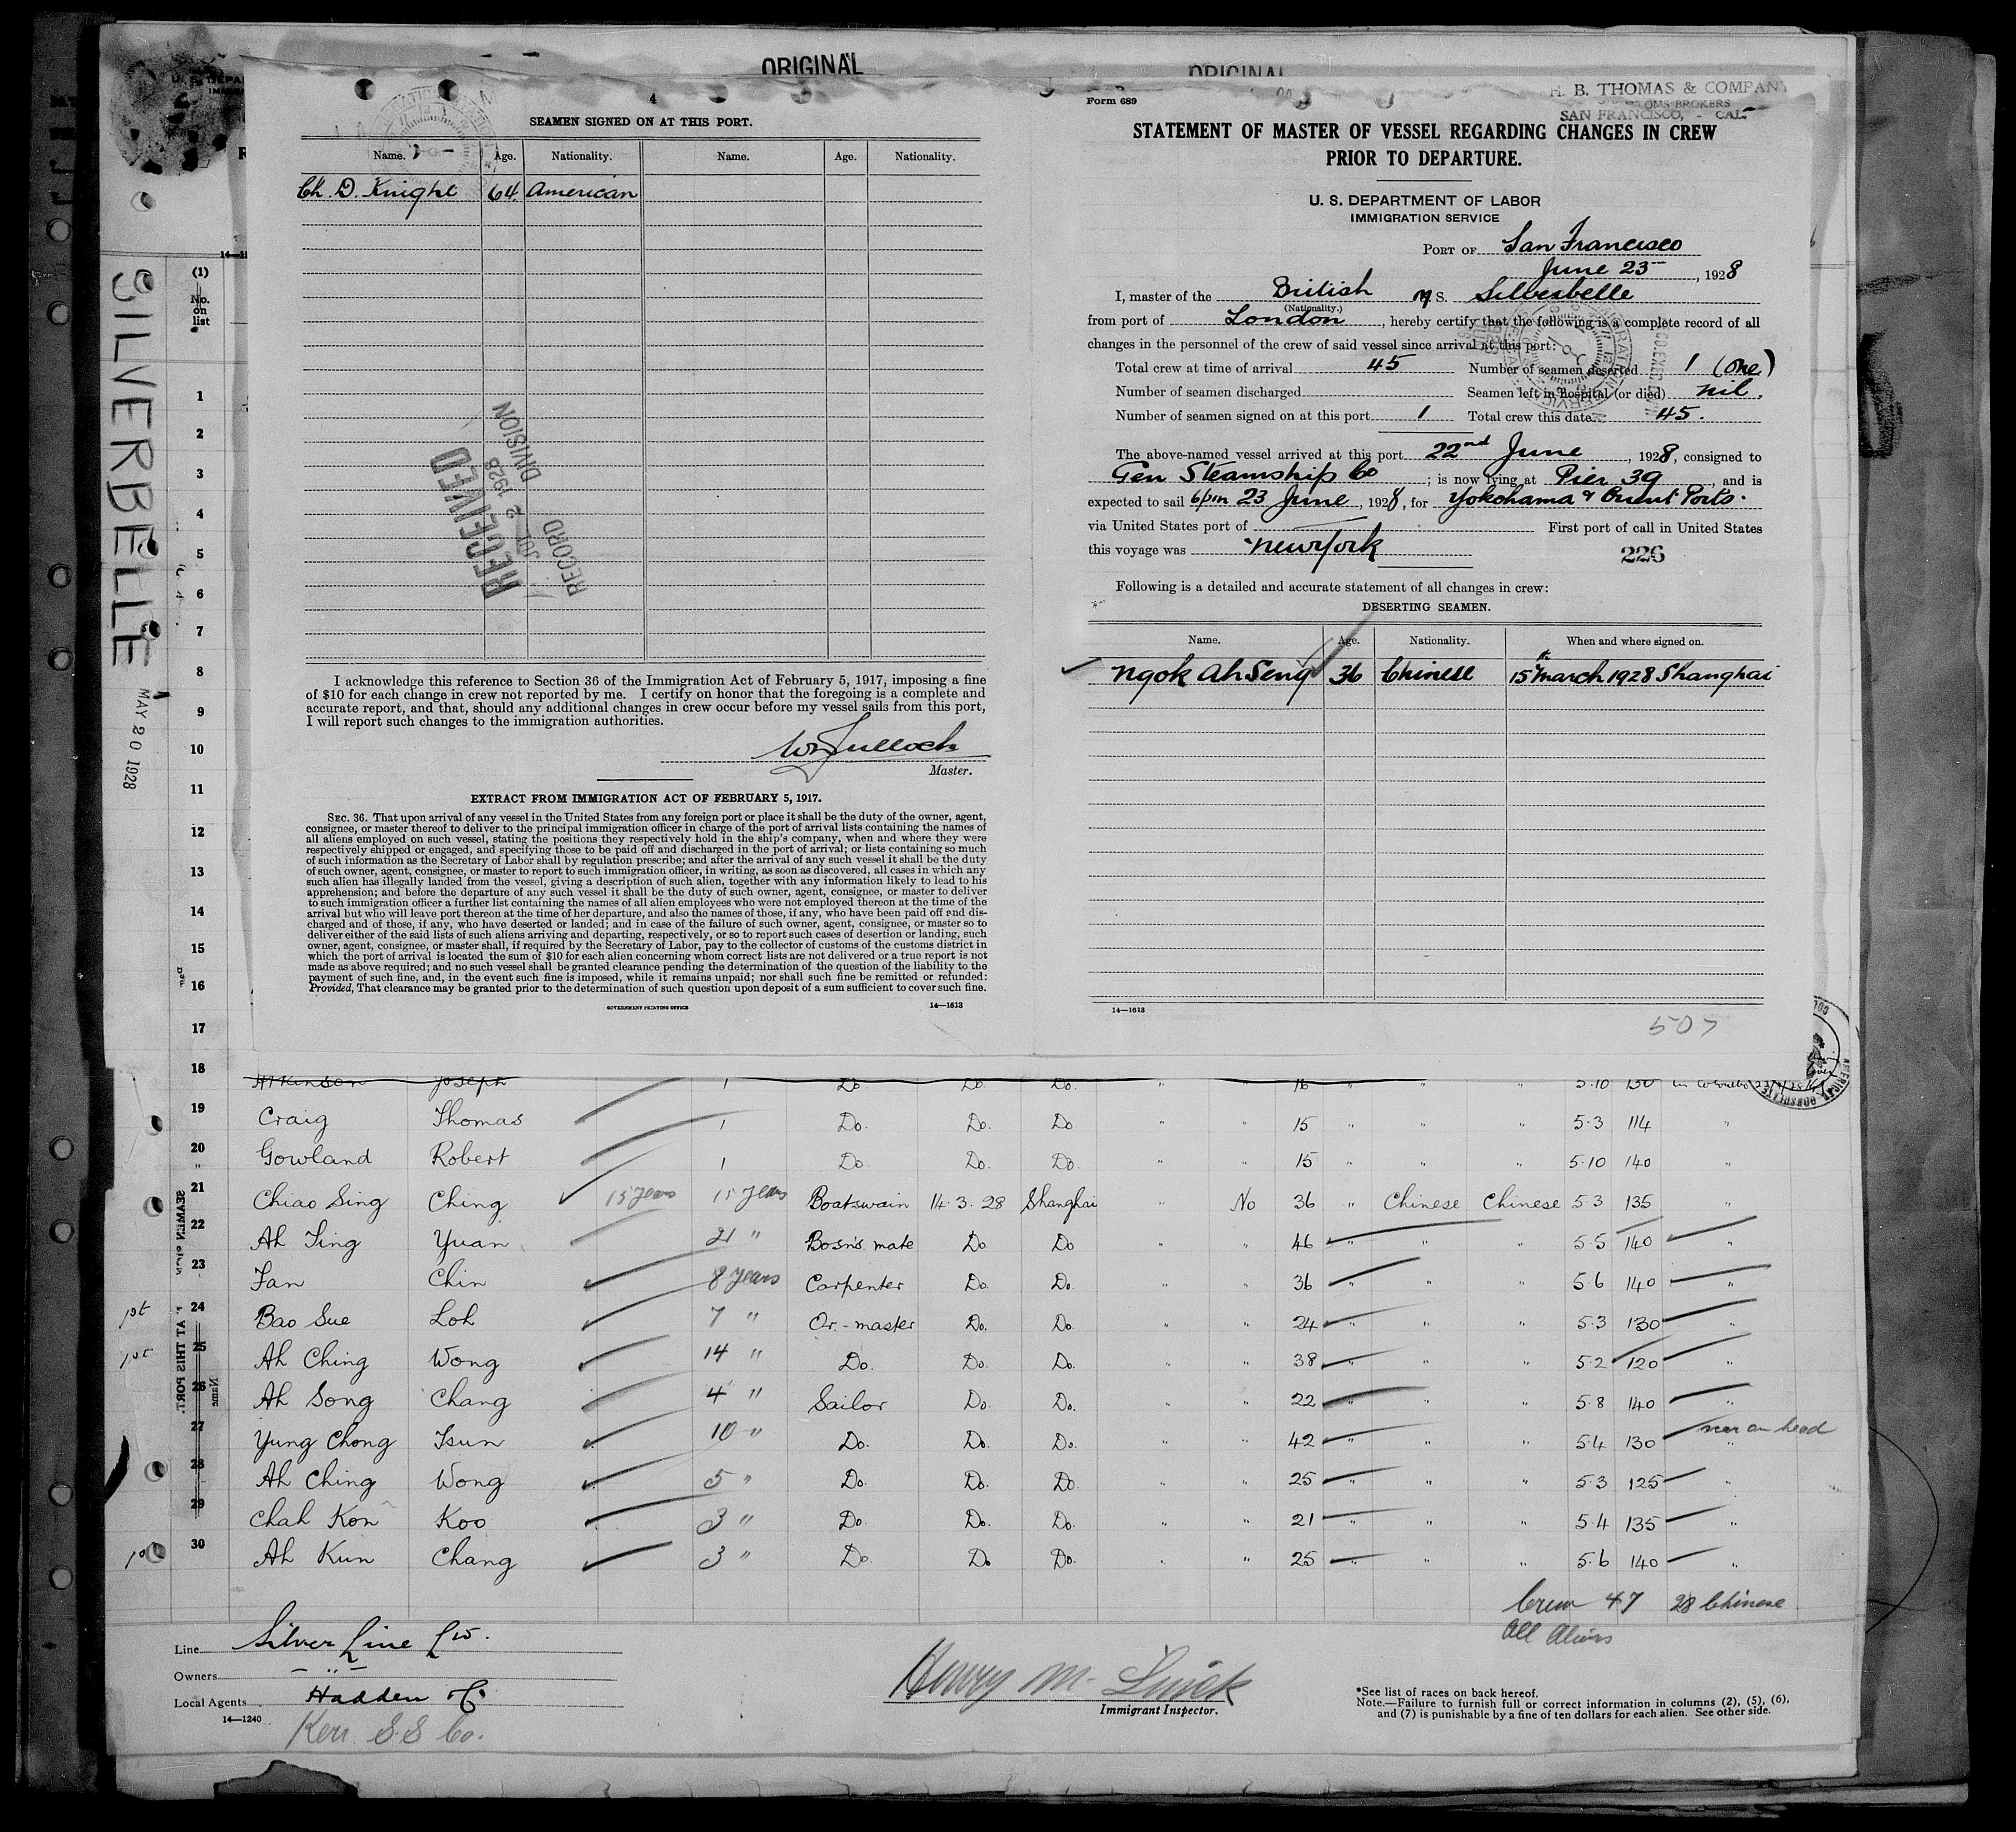 ORIGINAL
ORIGINAL
4
SEAMEN SIGNED ON AT THIS PORT.
Name. Age. Nationality. Name. Age. Nationality.
Ch. D. Knight 64 American
RECEIVED
JUL 2 1928
RECORD DIVISION
I acknowledge this reference to Section 36 of the Immigration Act of February 5, 1917, imposing a fine
of $10 for each change in crew not reported by me. I certify on honor that the foregoing is a complete and
accurate report, and that, should any additional changes in crew occur before my vessel sails from this port,
I will report such changes to the immigration authorities.
Master.
EXTRACT FROM IMMIGRATION ACT OF FEBRUARY 5, 1917.
SEC. 36. That upon arrival of any vessel in the United States from any foreign port or place it shall be the duty of the owner, agent,
consignee, or master thereof to deliver to the principal immigration officer in charge of the port of arrival lists containing the names of
all aliens employed on such vessel, stating the positions they respectively hold in the ship's company, when and where they were
respectively shipped or engaged, and specifying those to be paid off and discharged in the port of arrival; or lists containing so much
of such information as the Secretary of Labor shall by regulation prescribe; and after the arrival of any such vessel it shall be the duty
of such owner, agent, consignee, or master to report to such immigration officer, in writing, as soon as discovered, all cases in which any
such alien has illegally landed from the vessel, giving a description of such alien, together with any information likely to lead to his
apprehension; and before the departure of any such vessel it shall be the duty of such owner, agent, consignee, or master to deliver
to such immigration officer a further list containing the names of all alien employees who were not employed thereon at the time of the
arrival but who will leave port thereon at the time of her departure, and also the names of those, if any, who have been paid off and dis-
charged and of those, if any, who have deserted or landed; and in case of the failure of such owner, agent, consignee, or master so to
deliver either of the said lists of such aliens arriving and departing, respectively, or so to report such cases of desertion or landing, such
owner, agent, consignee, or master shall, if required by the Secretary of Labor, pay to the collector of customs of the customs district in
which the port of arrival is located the sum of $10 for each alien concerning whom correct lists are not delivered or a true report is not
made as above required; and no such vessel shall be granted clearance pending the determination of the question of the liability to the
payment of such fine, and, in the event such fine is imposed, while it remains unpaid; nor shall such fine be remitted or refunded:
Provided, That clearance may be granted prior to the determination of such question upon deposit of a sum sufficient to cover such fine.
GOVERNMENT PRINTING OFFICE 14—1613
Form 689
H. B. THOMAS & COMPANY
OMS BROKERS
SAN FRANCISCO, - CAL.
STATEMENT OF MASTER OF VESSEL REGARDING CHANGES IN CREW
PRIOR TO DEPARTURE.
U. S. DEPARTMENT OF LABOR
IMMIGRATION SERVICE
PORT OF San Francisco
June 23, 1928
I, master of the British M S. Silverbelle
(Nationality.)
from port of London, hereby certify that the following is a complete record of all
changes in the personnel of the crew of said vessel since arrival at this port:
Total crew at time of arrival 45 Number of seamen deserted 1 (one)
Number of seamen discharged Seamen left in hospital (or died) nil.
Number of seamen signed on at this port 1 Total crew this date 45.
The above-named vessel arrived at this port 22nd June, 1928, consigned to
Gen Steamship Co; is now lying at Pier 39, and is
expected to sail 6pm 23 June, 1928, for Yokohama & Orient Ports.
via United States port of First port of call in United States
this voyage was New York 226
Following is a detailed and accurate statement of all changes in crew:
DESERTING SEAMEN.
Name. Age. Nationality. When and where signed on.
Ngok Ah Seng 36 Chinese 15th March 1928 Shanghai
14—1613
507
SILVERBELLE
MAY 20 1928
(1)
No. on list
1
2
3
4
5
6
7
8
9
10
11
12
13
14
15
16
17
18 Atkinson Joseph 1 Do Do. Do. 16 5.10 150
19 Craig Thomas 1 Do. Do. Do 15 " " " 5.3 114 "
20 Gowland Robert 1 Do. Do. Do. " " 15 " " " 5.10 140 "
21 Chiao Sing Ching 15 years 15 years Boatswain 14.3.28 Shanghai " No 36 " Chinese Chinese 5 3 135 "
22 Ah Ting Yuan 21 " Bosn's mate Do Do " " 46 " " " 5 5 140 "
23 Fan Chin 8 years Carpenter Do. Do. " " 36 " " " 5.6 140 "
24 1st Bao Sue Loh 7 " Qr.-master Do. Do. " " 24 " " " 5.3 130 "
25 1st Ah Ching Wong 14 " Do. Do. Do. " " 38 " " " 5.2 120 "
26 Ah Song Chang 4 " Sailor Do. Do. " " 22 " " " 5 8 140 "
27 Yung Chong Tsun 10 " Do. Do. Do. " " 42 " " " 5.4 130 scar on head
28 Ah Ching Wong 5 " Do. Do. Do " " 25 " " " 5 3 125 "
29 Chah Kon Koo 3 " Do. Do. Do. " " 21 " " " 5 4 135 "
30 Ah Kun Chang 3 " Do Do Do. " " 25 " " " 5.6 140 "
Crew 47 28 Chinese
All Aliens
Line Silver Line Ltd.
Owners — " —
Local Agents Hadden & Co
14—1240 Kerr S.S Co.
Immigrant Inspector.
*See list of races on back hereof.
Note.—Failure to furnish full or correct information in columns (2), (5), (6),
and (7) is punishable by a fine of ten dollars for each alien. See other side.